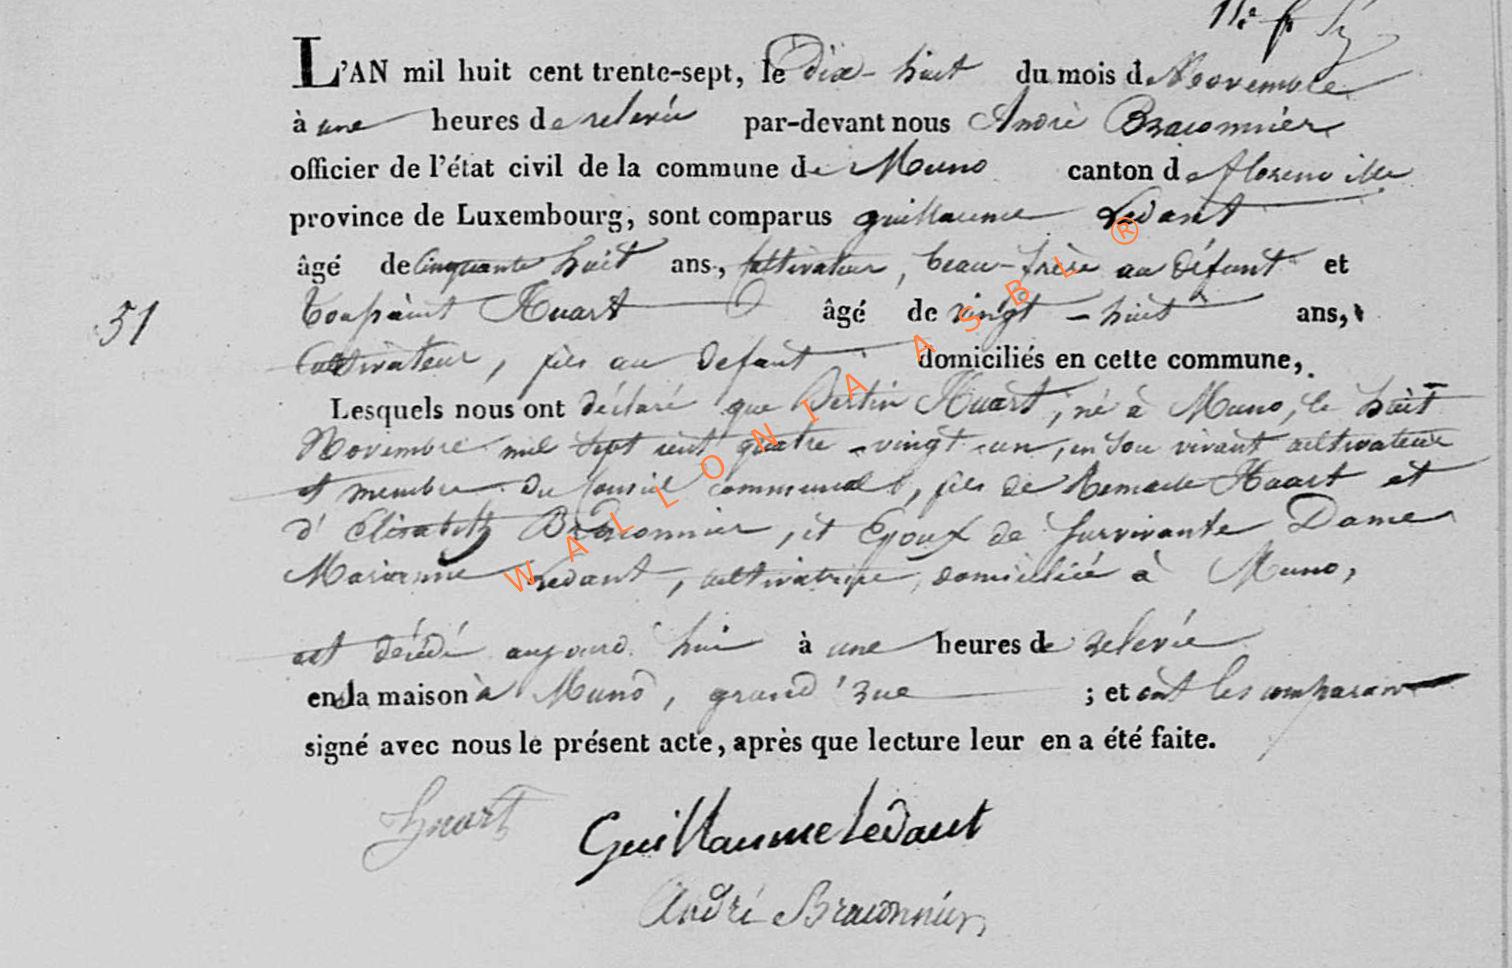 L'AN mil huit cent trente-sept, le dix-huit du mois de Novembre
à une heures de relevée par-devant nous André Braconnier
officier de l'état civil de la commune de Muno canton de florenville
province de Luxembourg, sont comparus guillaume Ledant
âgé de Cinquante huit ans, Cultivateur, beau-frère au défunt et
51 Toussaint Huart âgé de vingt-huit ans,
Cultivateur, fils au defunt domiciliés en cette commune,
Lesquels nous ont déclaré que Bertin Huart, né à Muno, le huit
Novembre mil sept cent quatre-vingt-un, en son vivant cultivateur
et membre du Conseil communal, fils de Remacle Huart et
d'Elisabeth Braconnier, et Epoux de survivante Dame
Marianne Ledant, cultivatrice, domiciliée à Muno,
est décédé aujourd'hui à une heures de relevée
en la maison à Muno, grand'rue ; et ont les comparans
signé avec nous le présent acte, après que lecture leur en a été faite.
Huart Guillaume Ledant
André Braconnier
WALLONIA ASBL ®